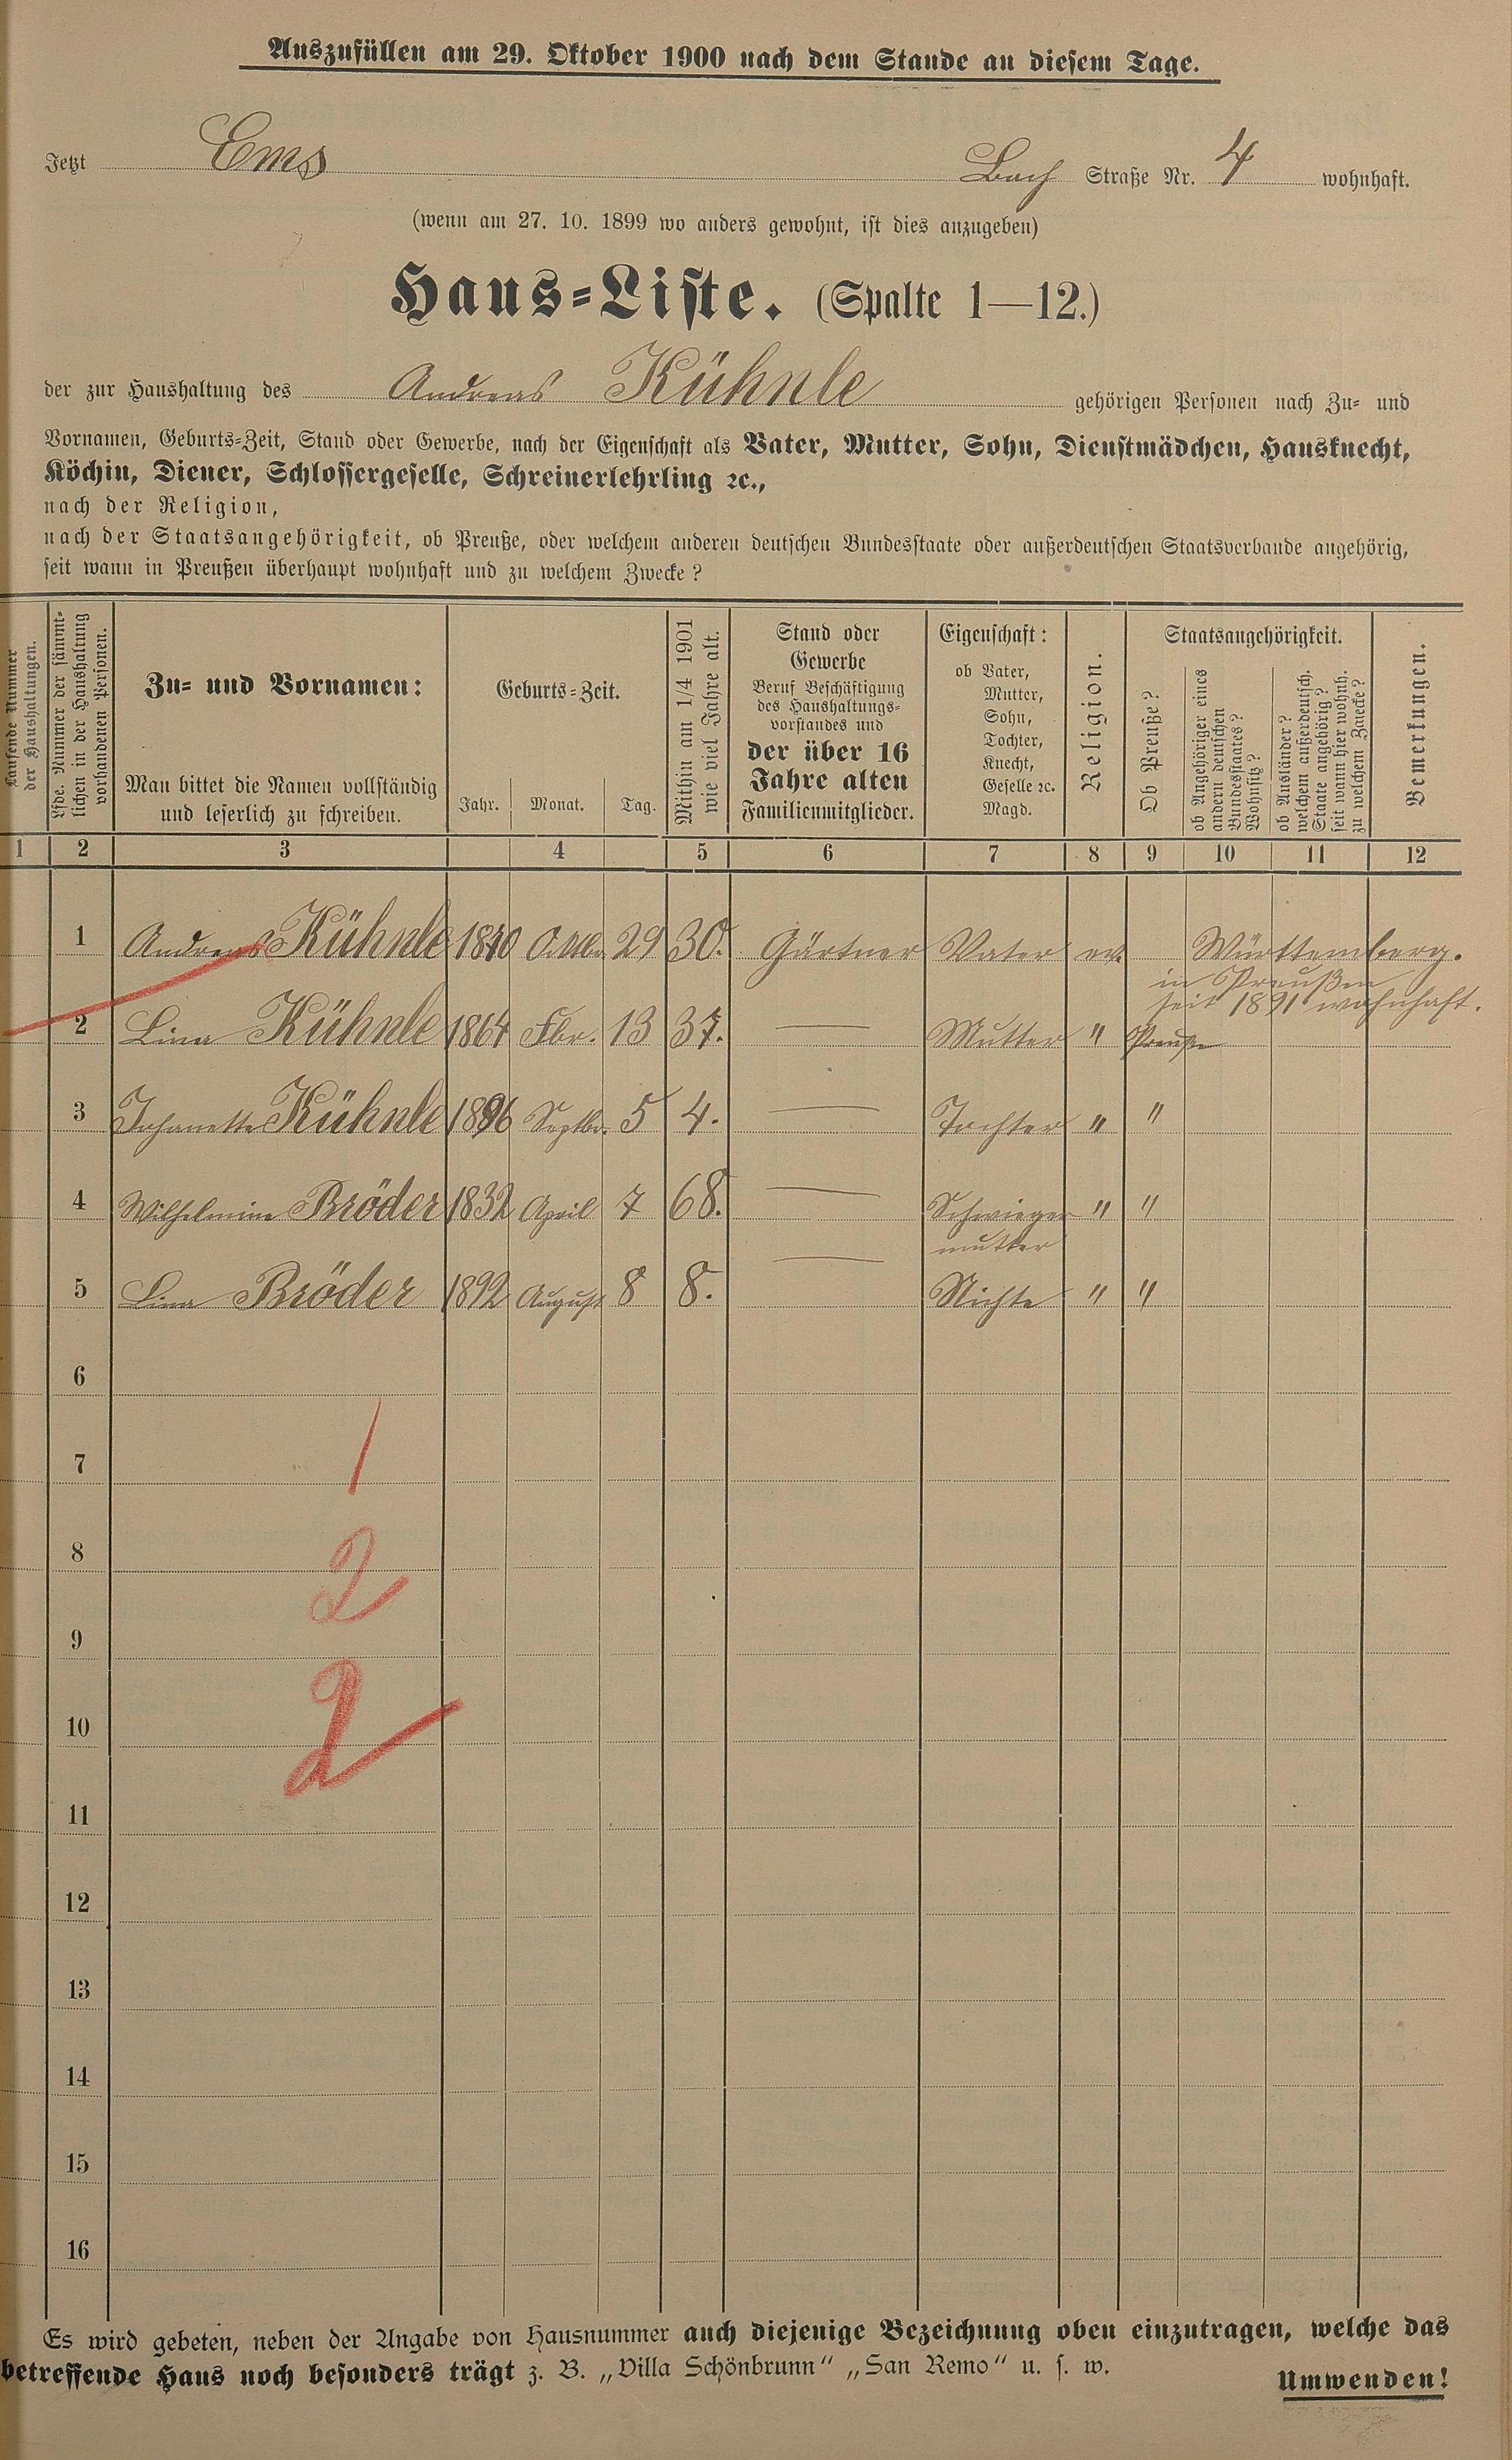 Auszufüllen am 29. Oktober 1900 nach dem Stande an diesem Tage.
Jetzt Ems Bach Straße Nr. 4 wohnhaft.
(wenn am 27. 10. 1899 wo anders gewohnt, ist dies anzugeben)
Haus-Liste. (Spalte 1—12.)
der zur Haushaltung des Andreas Kühnle gehörigen Personen nach Zu- und
Vornamen, Geburts-Zeit, Stand oder Gewerbe, nach der Eigenschaft als Vater, Mutter, Sohn, Dienstmädchen, Hausknecht,
Köchin, Diener, Schlossergeselle, Schreinerlehrling ꝛc.,
nach der Religion,
nach der Staatsangehörigkeit, ob Preuße, oder welchem anderen deutschen Bundesstaate oder außerdeutschen Staatsverbande angehörig,
seit wann in Preußen überhaupt wohnhaft und zu welchem Zwecke?
Laufende Nummer
der Haushaltungen.
Lfde. Nummer der sämmt-
lichen in der Haushaltung
vorhandenen Personen.
Zu- und Vornamen:
Man bittet die Namen vollständig
und leserlich zu schreiben.
Geburts-Zeit.
Jahr. Monat. Tag.
Mithin am 1/4 1901
wie viel Jahre alt.
Stand oder
Gewerbe
Beruf Beschäftigung
des Haushaltungs-
vorstandes und
der über 16
Jahre alten
Familienmitglieder.
Eigenschaft:
ob Vater,
Mutter,
Sohn,
Tochter,
Knecht,
Geselle ꝛc.
Magd.
Religion.
Staatsangehörigkeit.
Ob Preuße?
ob Angehöriger eines
andern deutschen
Bundesstaates?
Wohnsitz?
ob Ausländer?
welchem außerdeutsch.
Staate angehörig?
seit wann hier wohnh.
zu welchem Zwecke?
Bemerkungen.
1 2 3 4 5 6 7 8 9 10 11 12
1 Andreas Kühnle 1870 29 30. Gärtner Vater ev. Württemberg.
in Preußen
seit 1891 wohnhaft.
2 Lina Kühnle 1864 Fbr. 13 37. — Mutter " Preuße
3 Johanette Kühnle 1896 Septbr. 5 4. — Tochter " "
4 Wilhelmine Bröder 1832 April 7 68. — Schwieger " "
mutter
5 Lina Bröder 1892 August 8 8. — Nichte " "
6
7
1
8
2
9
10
2
11
12
13
14
15
16
Es wird gebeten, neben der Angabe von Hausnummer auch diejenige Bezeichnung oben einzutragen, welche das
betreffende Haus noch besonders trägt z. B. „Villa Schönbrunn“ „San Remo“ u. s. w.
Umwenden!